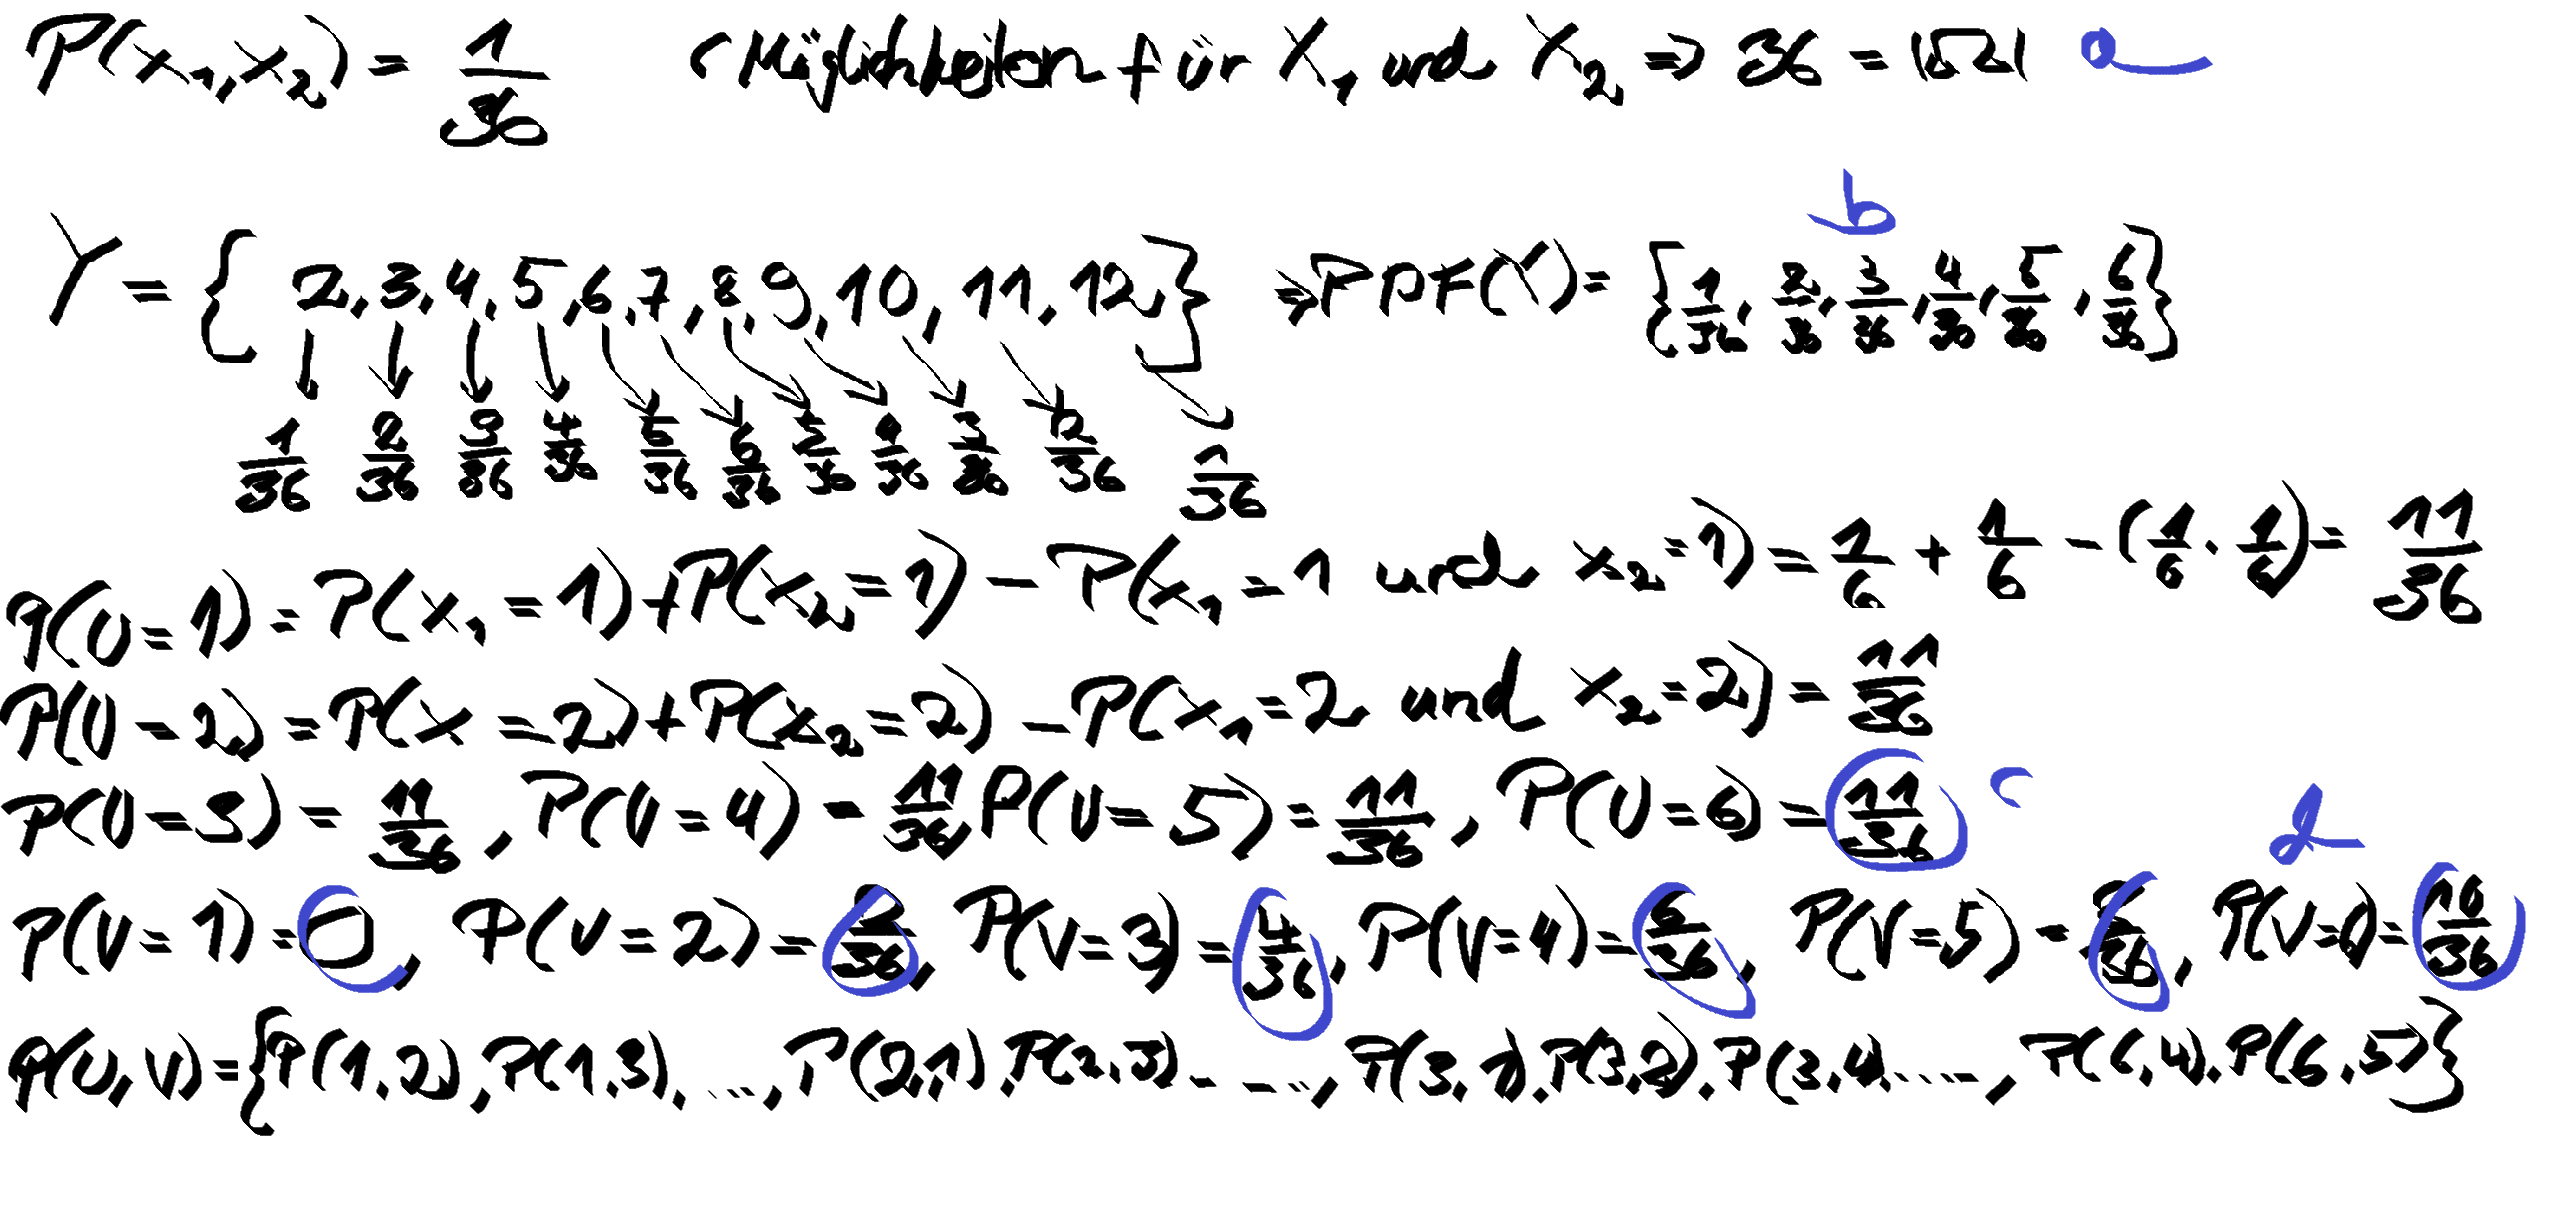 P(x₁,x₂) = 1/36 (Möglichkeiten für X₁ und X₂ ⇒ 36 = |Ω| a
b
Y = { 2, 3, 4, 5, 6, 7, 8, 9, 10, 11, 12 } ⇒ PDF(Y) = { 1/36, 2/36, 3/36, 4/36, 5/36, 6/36 }
1/36 2/36 3/36 4/36 5/36 6/36 5/36 4/36 3/36 2/36 1/36
P(U=1) = P(x₁=1) + P(x₂=1) - P(x₁=1 und x₂=1) = 1/6 + 1/6 - (1/6 · 1/6) = 11/36
P(U=2) = P(x=2) + P(x₂=2) - P(x₁=2 und x₂=2) = 11/36
P(U=3) = 11/36, P(U=4) = 11/36, P(U=5) = 11/36, P(U=6) = 11/36 c
d
P(V=1) = 0, P(V=2) = 2/36, P(V=3) = 4/36, P(V=4) = 6/36, P(V=5) = 8/36, P(V=6) = 10/36
P(U,V) = { P(1,2), P(1,3), ..., P(2,1), P(2,3) ..., P(3,1), P(3,2), P(3,4), ..., P(6,4), P(6,5) }